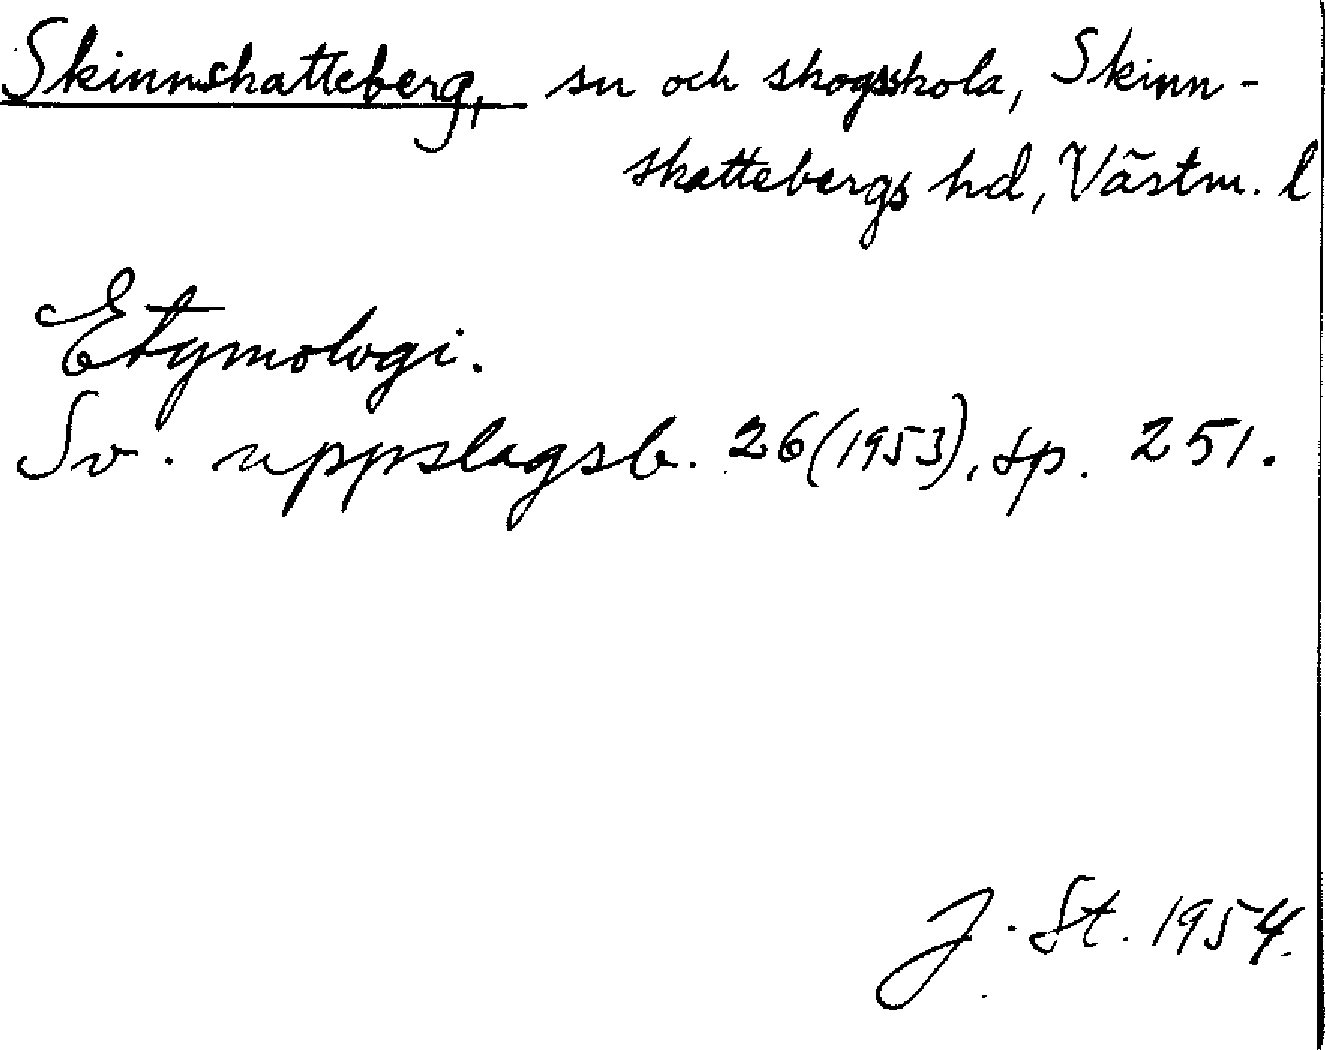 Skinnskatteberg, sn och skogsskola, Skinn-
skattebergs hd, Västm. l
Etymologi.
Sv. uppslagsb. 26 (1953), sp. 251.
J. St. 1954.